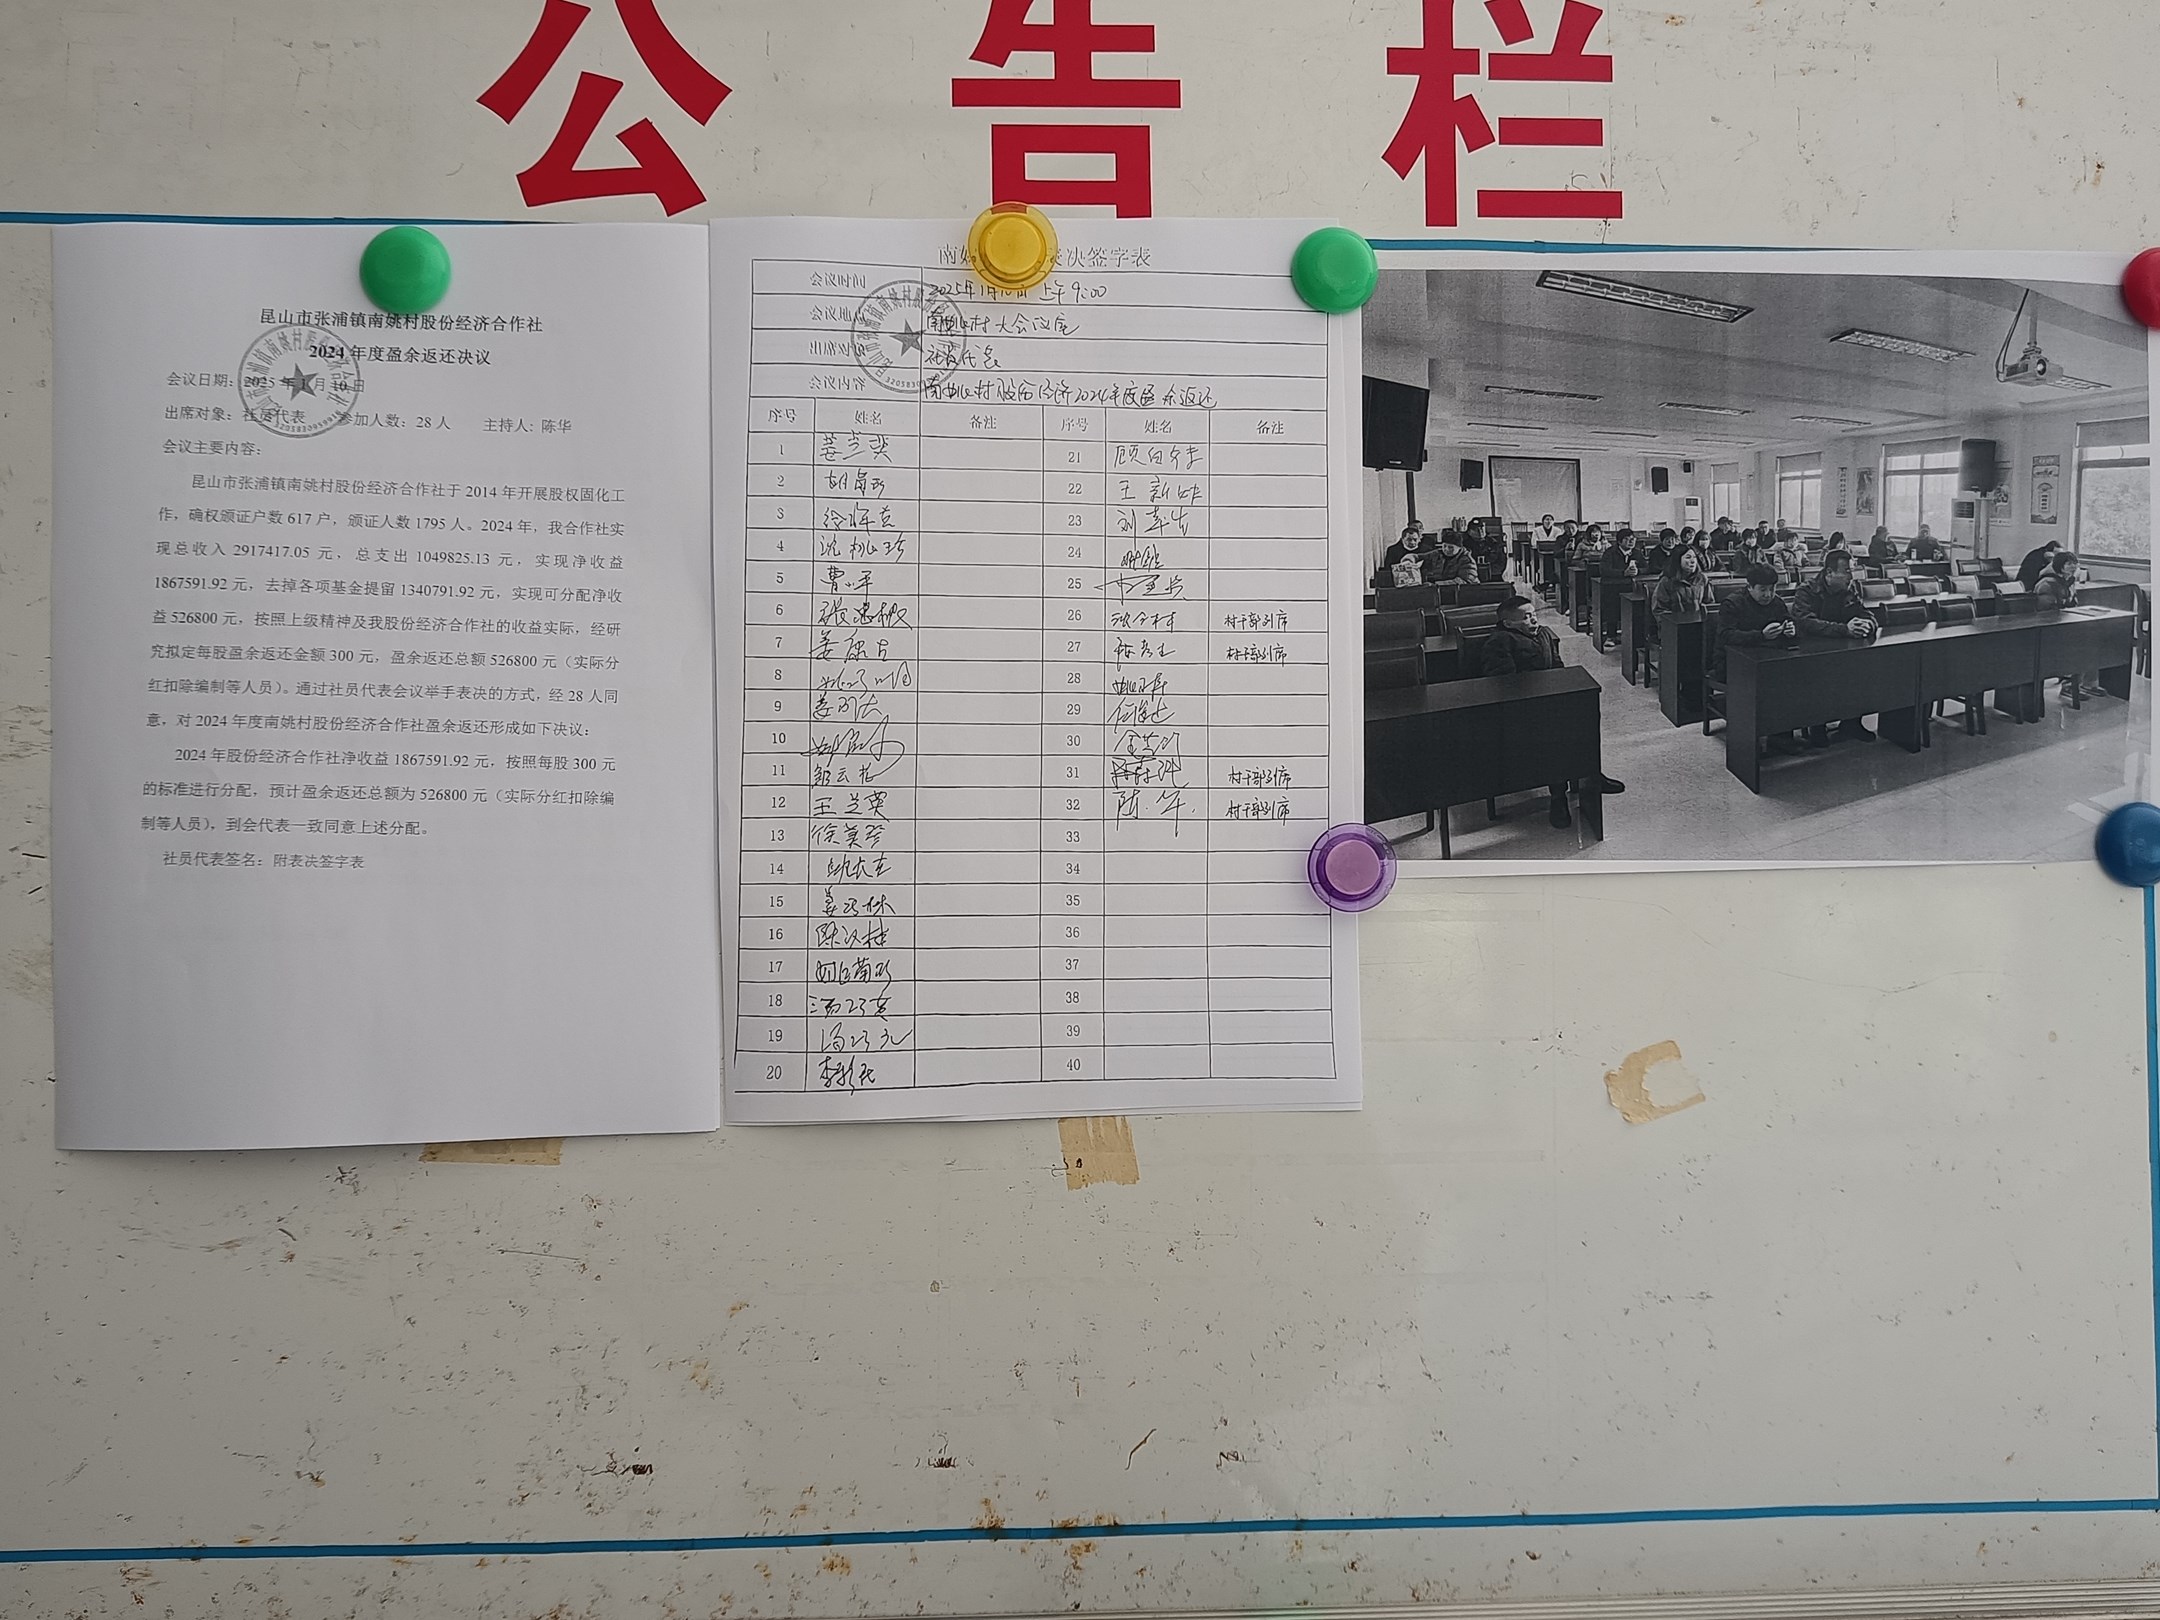 公告栏
昆山市张浦镇南姚村股份经济合作社
2024 年度盈余返还决议
会议日期：2025 年 1 月 10 日
出席对象：社员代表 参加人数：28 人 主持人：陈华
会议主要内容：
昆山市张浦镇南姚村股份经济合作社于 2014 年开展股权固化工
作，确权颁证户数 617 户，颁证人数 1795 人。2024 年，我合作社实
现总收入 2917417.05 元，总支出 1049825.13 元，实现净收益
1867591.92 元，去掉各项基金提留 1340791.92 元，实现可分配净收
益 526800 元，按照上级精神及我股份经济合作社的收益实际，经研
究拟定每股盈余返还金额 300 元，盈余返还总额 526800 元（实际分
红扣除编制等人员）。通过社员代表会议举手表决的方式，经 28 人同
意，对 2024 年度南姚村股份经济合作社盈余返还形成如下决议：
2024 年股份经济合作社净收益 1867591.92 元，按照每股 300 元
的标准进行分配，预计盈余返还总额为 526800 元（实际分红扣除编
制等人员），到会代表一致同意上述分配。
社员代表签名：附表决签字表
南姚 决签字表
会议时间 2025年1月10日 上午 9:00
会议地 南姚村大会议室
出席 社员代表
会议内容 南姚村股份经济2024年度盈余返还
序号 姓名 备注 序号 姓名 备注
1 姜兰英 21
2 22 王新
3 23 刘
4 沈桃珍 24
5 曹小平 25
6 26 村干部列席
7 27 村干部列席
8 28
9 29
10 30
11 31 村干部列席
12 王兰英 32 陈华 村干部列席
13 徐美琴 33
14 34
15 35
16 陈汉林 36
17 37
18 38
19 39
20 40